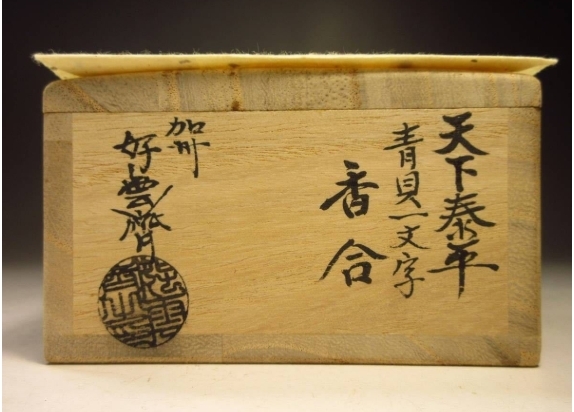 天下泰平
青貝一文字
香合
加州
好雲斎